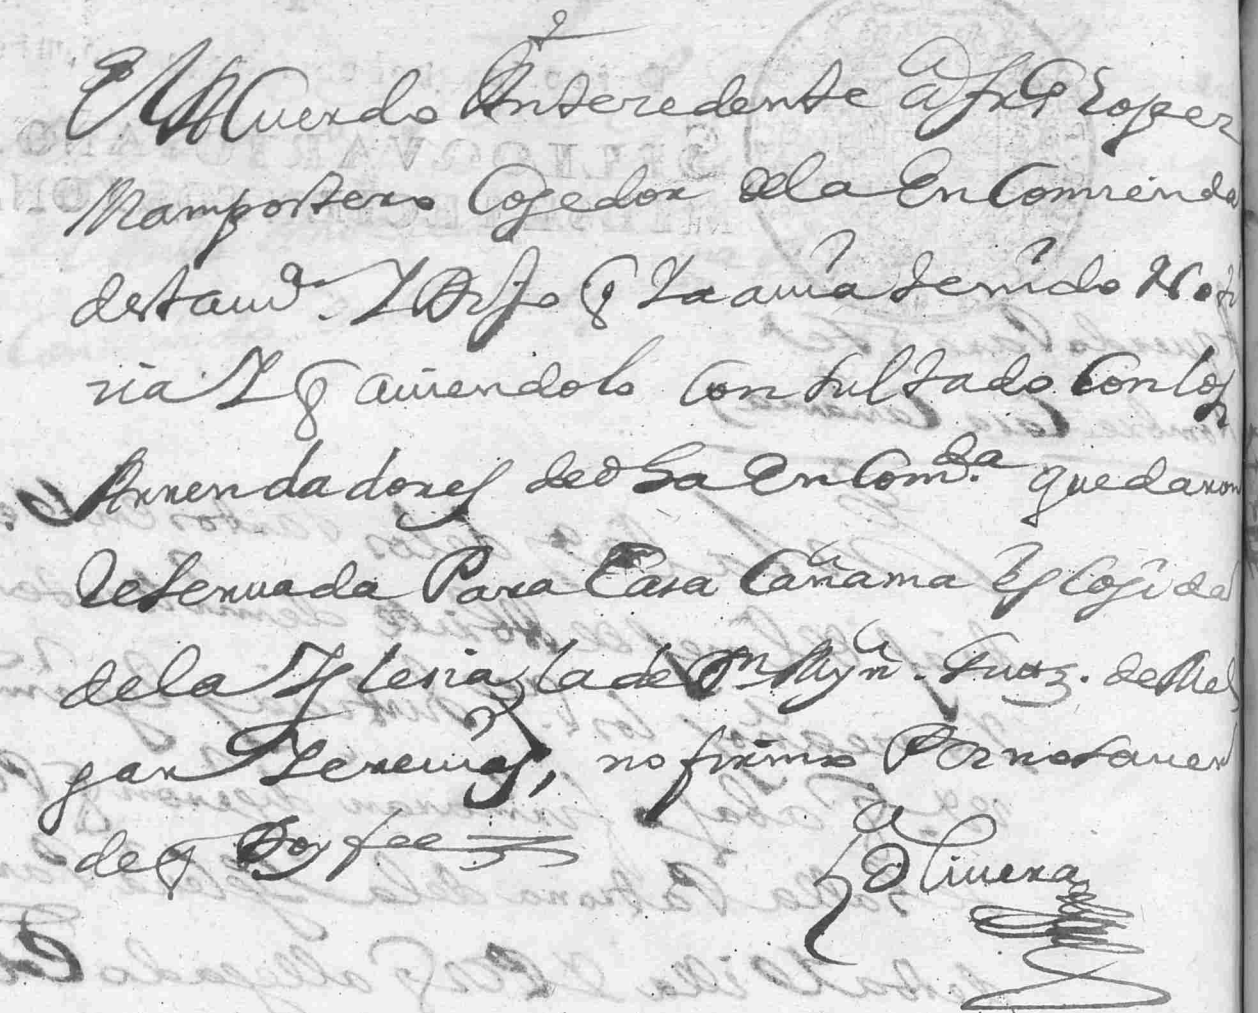 El Acuerdo Antezedente a fr.co Lopez
Mampostero Cojedor dela Encomienda
desta uid.a Y Dijo q Ya auia tenido Noti
cia Y q auiendolo Consultado Con los
Arrendadores de dha Encom.da quedaron
reseruada Para Casa Cañama Escojida
dela Yglesia la de D.n Mrn. Gutrz. de Mel
gar Teneria, no firmo Por no sauer
de q Doy fee
Oliuera